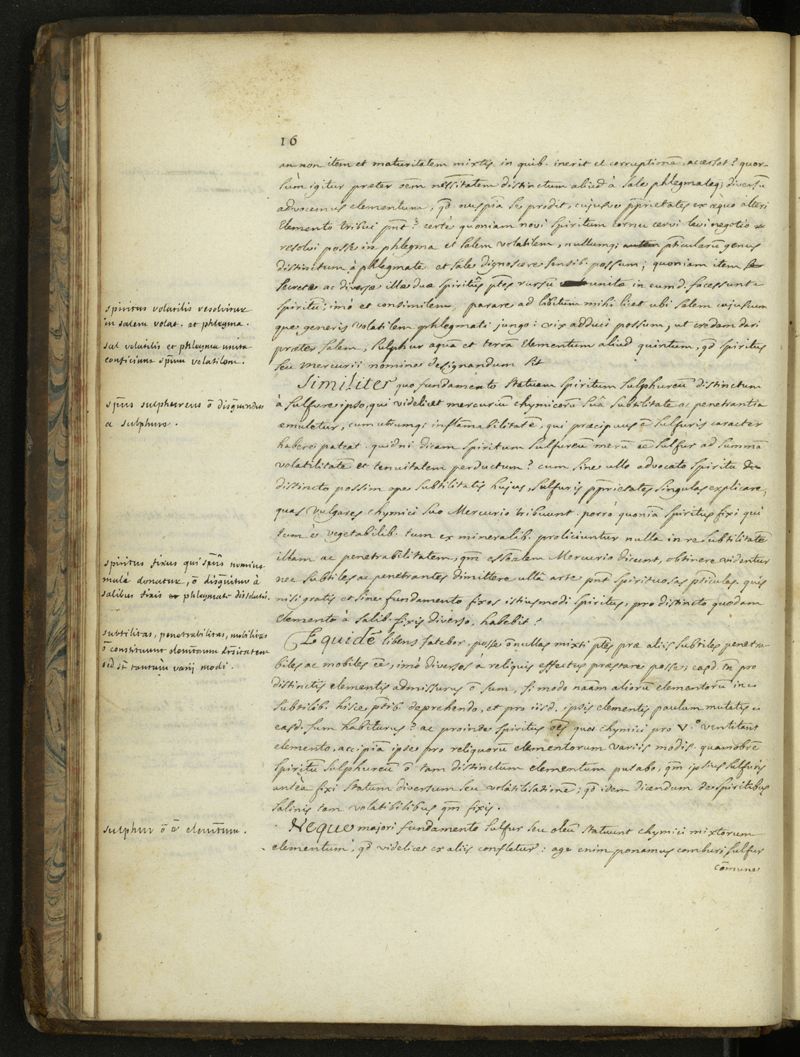 16
an non item et maturitatem mixtis in quib. inerit et corruptionē accerset? quor-
sùm igitur præter oēm nēssitatem distinctum aliud à sale phlegmateq; diversū
advocemus elementum, qd nuspiā se prodit, cujusve pprietates ex æquo alteri
elemento tribui pnt? certè quoniam novi spiritum cornu cervi levi negotio
resolvi posse in phlegma et salem volatilem, nullumq; pticularū genus
distinctum à phlegmate et sale dignoscere sensib. possum; quoniam item
ac diversæ illæ duæ spiritûs ptes rursū unitæ in eumd. facessunt
spiritū; imò et consimilem parare ad libitum mihi licet ubi salem cujuscun
que generis volatilem phlegmati jungo: vix adduci possum, ut credam dari
præter salem, sulphur aquā et terrā elementum aliud quintum, qd spiritus
seu mercurii nomine designandum sit
Similiter quo fundamento statuam spiritum sulphureū distinctum
à sulfure ipso, qui videlicet mercuriū chymicorū suâ subtilitate ac penetrantia
æmuletur, cum utrumq; inflāmabilitatē, qui præcipuus ē sulfuris caracter
habere pateat. quidni dicam spiritum sulfureū merū eē sulfur ad summā
volatilitatē et tenuitatem perductum? cum sine ullo advocato spiritu
distincto possim ope subtilitatis hujus, sulfuris pprietates singulas explicare,
quas vulgares chymici suo Mercurio tribuunt. porro quoniā spiritus fixi qui
tum è vegetabilib. tum ex mineralib. proliciuntur nulla in re subtilitatē
illam ac penetrabilitatem, qm essālem Mercurio dicunt, obtinere videntur
nec subtiles ac penetrantes dimittere ullâ arte pnt spirituosas pticulas. quis
nisi gratis et sine fundamento fixos istiusmodi spiritus, pro distincto quodam
elemento à salib. fixis diverso, habebit?
Equidē libens fatebor, posse ōnullas mixti ptes præ aliis subtiles penetra-
biles ac mobiles eē, imò diversos a reliquis effectus præstare posse; easd tn pro
distinctis elementis admissurus ō sum, si modo naām aliorū elementorū in
subtilib. hisce ptib. deprehendo, et pro iisd. ipsis elementis paulum mutatis
easd. sum habiturus? ac proinde spiritus oēs quos chymici pro V.º ventitant
elemento, accipiā ipse pro reliquorū elementorum variis modis quamobrē
spiritū sulphureū ō tam distinctum elementum putabo, qm ipsius sulfuris
antea fixi statum diversum seu volatilisatione; qd idem dicendum de spiritibus
salinis tam volatilibus qm fixis.
Neque majori fundamento sulfur seu oleū statuunt chymici mixtorum
elementum, qd videlicet ex aliis confletur: age enim ponamus comburi sulfur
cōmune
spiritus volatilis resolvitur
in salem volat. et phlegma.
sal volatilis et phlegma unita
conficiunt spūm volatilem.
spūs sulphureus ō disḡuendus
a sulphure.
spiritus fixus qui spūs nomine
male donatur, ō disḡuitur à
salibus fixis phlegmate dissolutis.
subtilitas, penetrabilitas, mobilitas
ō constituunt elemtorum drñitatem
sed st tantùm varij modi.
sulphur ō ē elemtum.